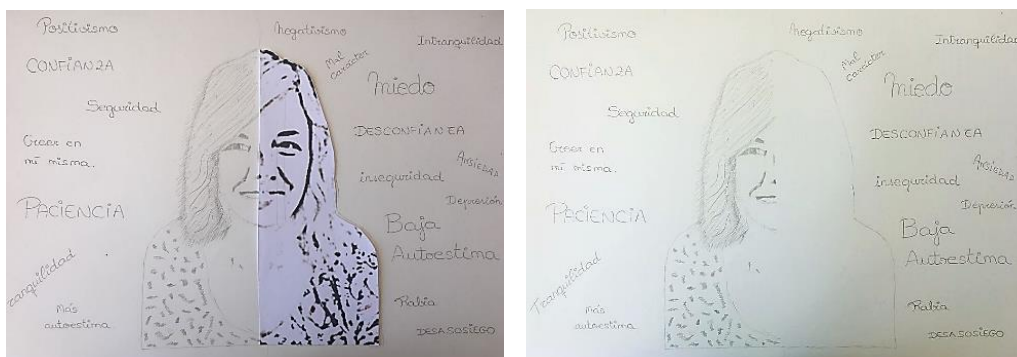 Positivismo
CONFÍANZA
Seguridad
Creer en
mí misma.
PACIENCIA
tranquilidad
Más
autoestima
Negativismo
Mal
carácter
Intranquilidad
Miedo
DESCONFÍANZA
ANSIEDAD
inseguridad
Depresión
Baja
Autoestima
Rabia
DESASOSIEGO
Positivismo
CONFÍANZA
Seguridad
Creer en
mí misma.
PACIENCIA
Tranquilidad
Más
autoestima
Negativismo
Mal
carácter
Intranquilidad
Miedo
DESCONFÍANZA
ANSIEDAD
inseguridad
Depresión
Baja
Autoestima
Rabia
DESASOSIEGO